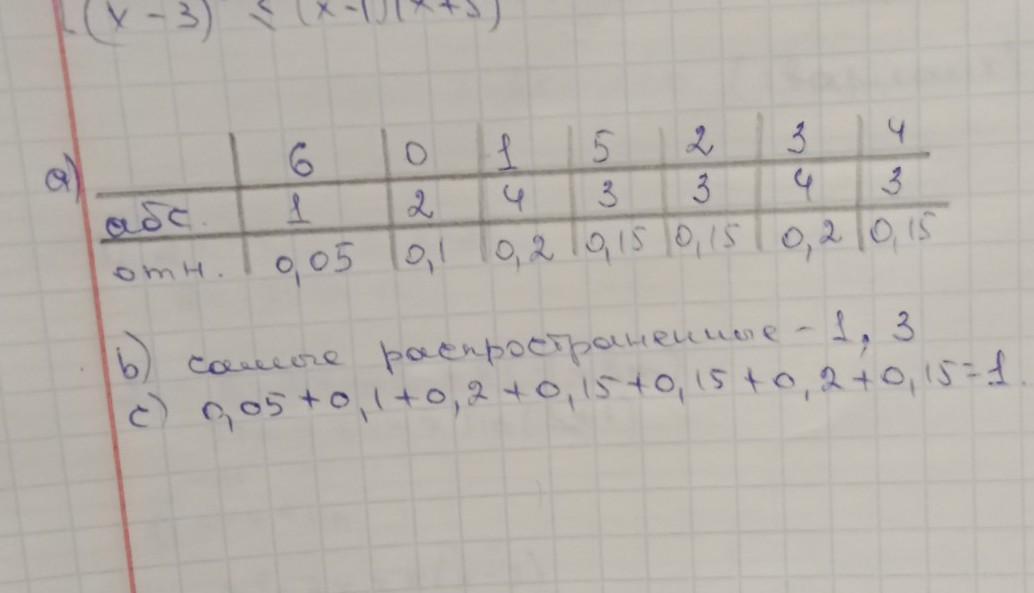 (x - 3) < (x-1)(x+5)
a) 6 0 1 5 2 3 4
абс. 1 2 4 3 3 4 3
отн. 0,05 0,1 0,2 0,15 0,15 0,2 0,15
b) самые распространенные - 1, 3
c) 0,05+0,1+0,2+0,15+0,15+0,2+0,15=1